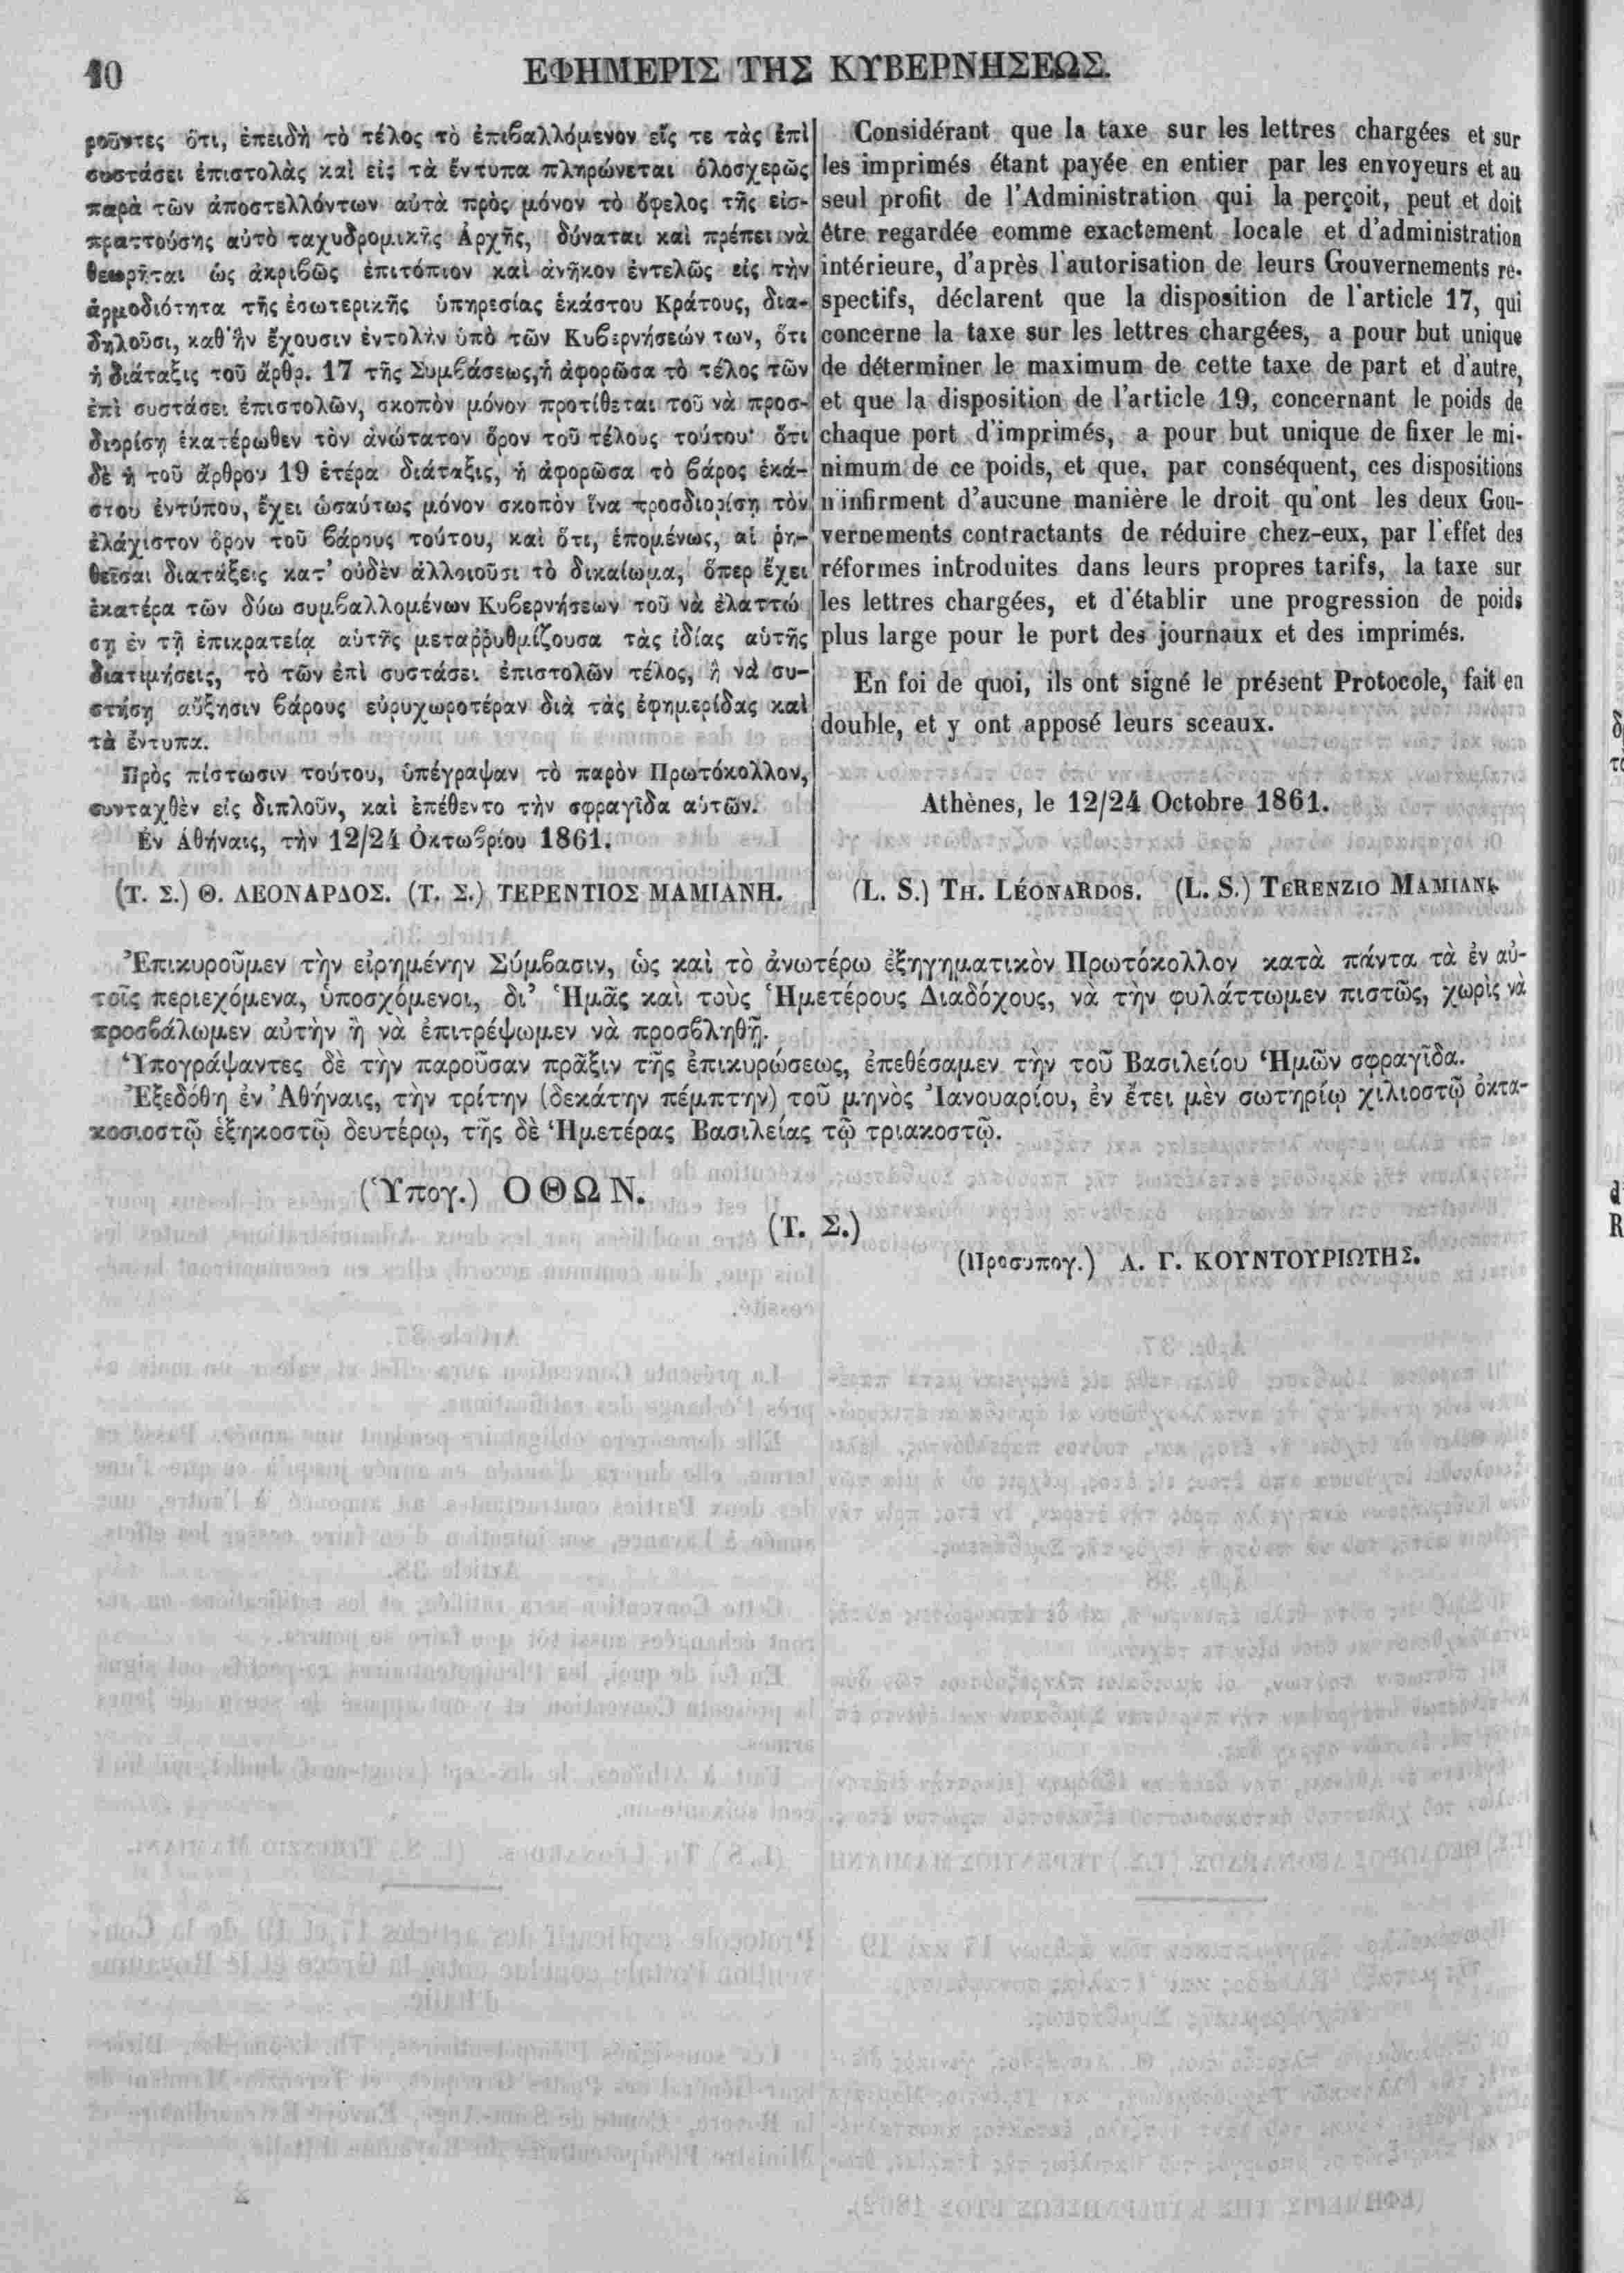 10
ΕΦΗΜΕΡΙΣ ΤΗΣ ΚΥΒΕΡΝΗΣΕΩΣ.
ροῦντες ὅτι, ἐπειδὴ τὸ τέλος τὸ ἐπιβαλλόμενον εἴς τε τὰς ἐπὶ
συστάσει ἐπιστολὰς καὶ εἰς τὰ ἔντυπα πληρώνεται ὁλοσχερῶς
παρὰ τῶν ἀποστελλόντων αὐτὰ πρὸς μόνον τὸ ὄφελος τῆς εἰσ-
πραττούσης αὐτὸ ταχυδρομικῆς Ἀρχῆς, δύναται καὶ πρέπει νὰ
θεωρῆται ὡς ἀκριβῶς ἐπιτόπιον καὶ ἀνῆκον ἐντελῶς εἰς τὴν
ἁρμοδιότητα τῆς ἐσωτερικῆς ὑπηρεσίας ἑκάστου Κράτους, δια-
δηλοῦσι, καθ' ἣν ἔχουσιν ἐντολὴν ὑπὸ τῶν Κυβερνήσεών των, ὅτι
ἡ διάταξις τοῦ ἄρθρ. 17 τῆς Συμβάσεως, ἡ ἀφορῶσα τὸ τέλος τῶν
ἐπὶ συστάσει ἐπιστολῶν, σκοπὸν μόνον προτίθεται τοῦ νὰ προσ-
διορίσῃ ἑκατέρωθεν τὸν ἀνώτατον ὅρον τοῦ τέλους τούτου· ὅτι
δὲ ἡ τοῦ ἄρθρου 19 ἑτέρα διάταξις, ἡ ἀφορῶσα τὸ βάρος ἑκά-
στου ἐντύπου, ἔχει ὡσαύτως μόνον σκοπὸν ἵνα προσδιορίσῃ τὸν
ἐλάχιστον ὅρον τοῦ βάρους τούτου, καὶ ὅτι, ἑπομένως, αἱ ῥη-
θεῖσαι διατάξεις κατ' οὐδὲν ἀλλοιοῦσι τὸ δικαίωμα, ὅπερ ἔχει
ἑκατέρα τῶν δύω συμβαλλομένων Κυβερνήσεων τοῦ νὰ ἐλαττώ
σῃ ἐν τῇ ἐπικρατείᾳ αὑτῆς μεταῤῥυθμίζουσα τὰς ἰδίας αὑτῆς
διατιμήσεις, τὸ τῶν ἐπὶ συστάσει ἐπιστολῶν τέλος, ἢ νὰ συ-
στήσῃ αὔξησιν βάρους εὐρυχωροτέραν διὰ τὰς ἐφημερίδας καὶ
τὰ ἔντυπα.
Πρὸς πίστωσιν τούτου, ὑπέγραψαν τὸ παρὸν Πρωτόκολλον,
συνταχθὲν εἰς διπλοῦν, καὶ ἐπέθεντο τὴν σφραγῖδα αὑτῶν.
Ἐν Ἀθήναις, τὴν 12/24 Ὀκτωβρίου 1861.
(Τ. Σ.) Θ. ΛΕΟΝΑΡΔΟΣ. (Τ. Σ.) ΤΕΡΕΝΤΙΟΣ ΜΑΜΙΑΝΗ.
Considérant que la taxe sur les lettres chargées et sur
les imprimés étant payée en entier par les envoyeurs et au
seul profit de l'Administration qui la perçoit, peut et doit
être regardée comme exactement locale et d'administration
intérieure, d'après l'autorisation de leurs Gouvernements re-
spectifs, déclarent que la disposition de l'article 17, qui
concerne la taxe sur les lettres chargées, a pour but unique
de déterminer le maximum de cette taxe de part et d'autre,
et que la disposition de l'article 19, concernant le poids de
chaque port d'imprimés, a pour but unique de fixer le mi-
nimum de ce poids, et que, par conséquent, ces dispositions
n'infirment d'aucune manière le droit qu'ont les deux Gou-
vernements contractants de réduire chez-eux, par l'effet des
réformes introduites dans leurs propres tarifs, la taxe sur
les lettres chargées, et d'établir une progression de poids
plus large pour le port des journaux et des imprimés.
En foi de quoi, ils ont signé le présent Protocole, fait en
double, et y ont apposé leurs sceaux.
Athènes, le 12/24 Octobre 1861.
(L. S.) TH. LÉONARDOS. (L. S.) TERENZIO MAMIANI.
Ἐπικυροῦμεν τὴν εἰρημένην Σύμβασιν, ὡς καὶ τὸ ἀνωτέρω ἐξηγηματικὸν Πρωτόκολλον κατὰ πάντα τὰ ἐν αὐ-
τοῖς περιεχόμενα, ὑποσχόμενοι, δι' Ἡμᾶς καὶ τοὺς Ἡμετέρους Διαδόχους, νὰ τὴν φυλάττωμεν πιστῶς, χωρὶς νὰ
προσβάλωμεν αὐτὴν ἢ νὰ ἐπιτρέψωμεν νὰ προσβληθῇ.
Ὑπογράψαντες δὲ τὴν παροῦσαν πρᾶξιν τῆς ἐπικυρώσεως, ἐπεθέσαμεν τὴν τοῦ Βασιλείου Ἡμῶν σφραγῖδα.
Ἐξεδόθη ἐν Ἀθήναις, τὴν τρίτην (δεκάτην πέμπτην) τοῦ μηνὸς Ἰανουαρίου, ἐν ἔτει μὲν σωτηρίῳ χιλιοστῷ ὀκτα-
κοσιοστῷ ἑξηκοστῷ δευτέρῳ, τῆς δὲ Ἡμετέρας Βασιλείας τῷ τριακοστῷ.
(Ὑπογ.) ΟΘΩΝ.
(Τ. Σ.)
(Προσυπογ.) Α. Γ. ΚΟΥΝΤΟΥΡΙΩΤΗΣ.